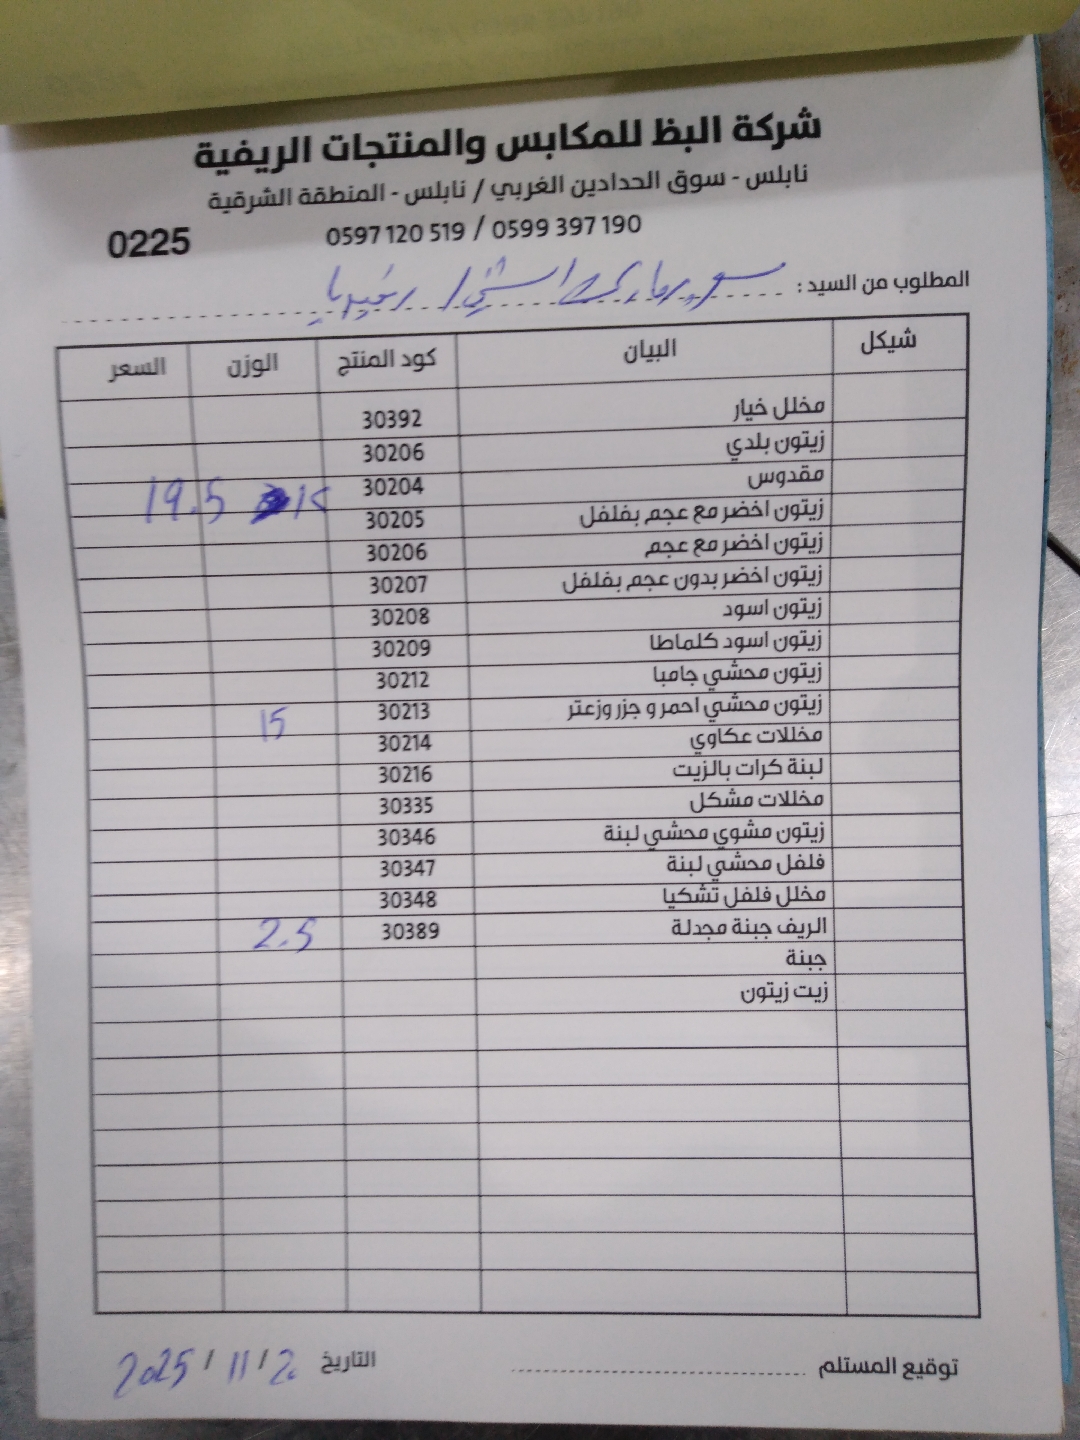 شركة البظ للمكابس والمنتجات الريفية
نابلس - سوق الحدادين الغربي / نابلس - المنطقة الشرقية
0599 397 190 / 0597 120 519
0225
المطلوب من السيد : سوبر ماركت
شيكل البيان كود المنتج الوزن السعر
مخلل خيار 30392
زيتون بلدي 30206
مقدوس 30204 19.5
زيتون اخضر مع عجم بفلفل 30205
زيتون اخضر مع عجم 30206
زيتون اخضر بدون عجم بفلفل 30207
زيتون اسود 30208
زيتون اسود كلماطا 30209
زيتون محشي جامبا 30212
زيتون محشي احمر و جزر وزعتر 30213 15
مخللات عكاوي 30214
لبنة كرات بالزيت 30216
مخللات مشكل 30335
زيتون مشوي محشي لبنة 30346
فلفل محشي لبنة 30347
مخلل فلفل تشكيا 30348
الريف جبنة مجدلة 30389 2.5
جبنة
زيت زيتون
توقيع المستلم
التاريخ 20 / 11 / 2025